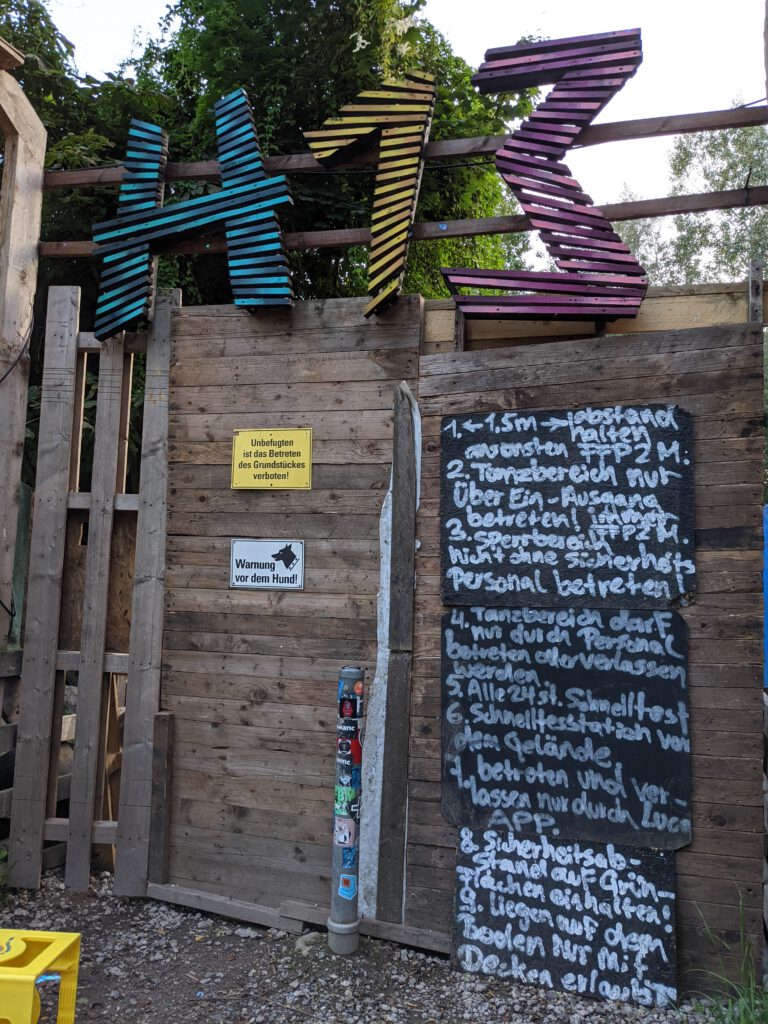 H13
Unbefugten
ist das Betreten
des Grundstückes
verboten!
Warnung
vor dem Hund!
1. ← 1.5m → abstand
halten
ansonsten FFP2 M.
2. Tanzbereich nur
Über Ein-Ausgang
betreten! immer
FFP2 M.
3. Sperrbereich
nicht ohne sicherheits
Personal betreten!
4. Tanzbereich darf
nur durch Personal
betreten oder verlassen
werden
5. Alle 24 st. Schnelltest
6. Schnelltesstation vor
dem Gelände
7. betreten und ver-
lassen nur durch Luca
APP.
8. Sicherheitsab-
stand auf Grün-
flächen einhalten!
9. liegen auf dem
Boden Nur Mit
Decken erlaubt